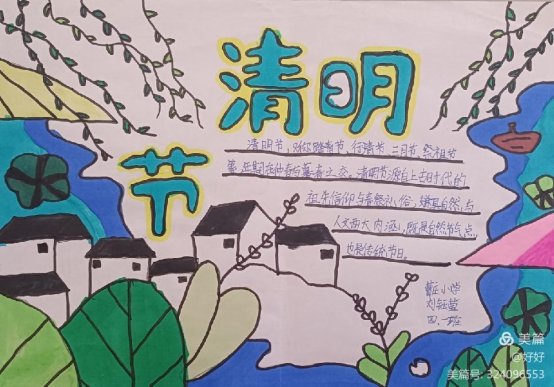 清明节
清明节,又称踏青节、行清节、三月节、祭祖节
等,节期在仲春与暮春之交。清明节源自上古时代的
祖先信仰与春祭礼俗,兼具自然与
人文两大内涵,既是自然节气点,
也是传统节日。
小学
刘钰萱
四、一班
美篇
@好好
美篇号: 324096553